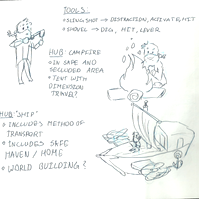 TOOLS:
• SLINGSHOT → DISTRACTION, ACTIVATE, HIT
• SHOVEL → DIG, HIT, LEVER
HUB: CAMPFIRE
• IN SAFE AND
SECLUDED AREA
• TENT WITH
DIMENSION
TRAVEL?
HUB: "SHIP"
• INCLUDES METHOD OF
TRANSPORT
• INCLUDES SAFE
HAVEN / HOME
• WORLD BUILDING?